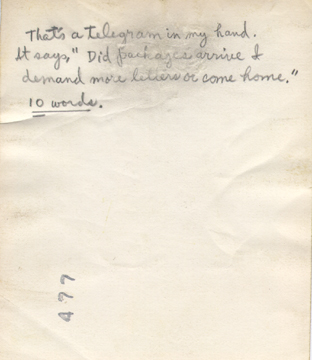 That's a telegram in my hand.
It says, "Did packages arrive I
demand more letters or come home."
10 words.
477